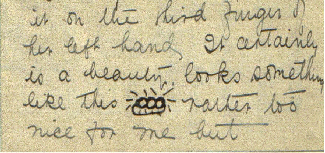 it on the third finger of
his left hand, It certainly
is a beauty, looks something
like this rather too
nice for me but